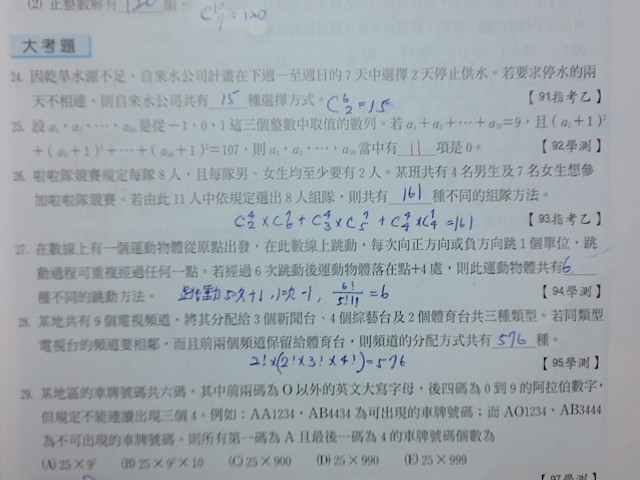 (2) 正整數解有 120 組。 C =120
大考題
24. 因乾旱水源不足，自來水公司計畫在下週一至週日的 7 天中選擇 2 天停止供水。若要求停水的兩
天不相連，則自來水公司共有 15 種選擇方式。C⁶₂=15 【91指考乙】
25. 設 a₁，a₂，⋯，a₅₀ 是從 −1，0，1 這三個整數中取值的數列。若 a₁+a₂+⋯+a₅₀=9，且 (a₁+1)²
+(a₂+1)²+⋯+(a₅₀+1)²=107，則 a₁，a₂，⋯，a₅₀ 當中有 11 項是 0。 【92學測】
26. 啦啦隊競賽規定每隊 8 人，且每隊男、女生均至少要有 2 人。某班共有 4 名男生及 7 名女生想參
加啦啦隊競賽。若由此 11 人中依規定選出 8 人組隊，則共有 161 種不同的組隊方法。
C⁴₂×C⁷₆+C⁴₃×C⁷₅+C⁴₄×C⁷₄=161 【93指考乙】
27. 在數線上有一個運動物體從原點出發，在此數線上跳動，每次向正方向或負方向跳 1 個單位，跳
動過程可重複經過任何一點。若經過 6 次跳動後運動物體落在點+4 處，則此運動物體共有 6
種不同的跳動方法。 跳動5次+1，1次-1，6!/5!1!=6 【94.學測】
28. 某地共有 9 個電視頻道，將其分配給 3 個新聞台、4 個綜藝台及 2 個體育台共三種類型。若同類型
電視台的頻道要相鄰，而且前兩個頻道保留給體育台，則頻道的分配方式共有 576 種。
2!×(2!×3!×4!)=576 【95學測】
29. 某地區的車牌號碼共六碼，其中前兩碼為 O 以外的英文大寫字母，後四碼為 0 到 9 的阿拉伯數字，
但規定不能連續出現三個 4。例如：AA1234，AB4434 為可出現的車牌號碼；而 AO1234，AB3444
為不可出現的車牌號碼。則所有第一碼為 A 且最後一碼為 4 的車牌號碼個數為
(A) 25×9³ (B) 25×9²×10 (C) 25×900 (D) 25×990 (E) 25×999
【97學測】